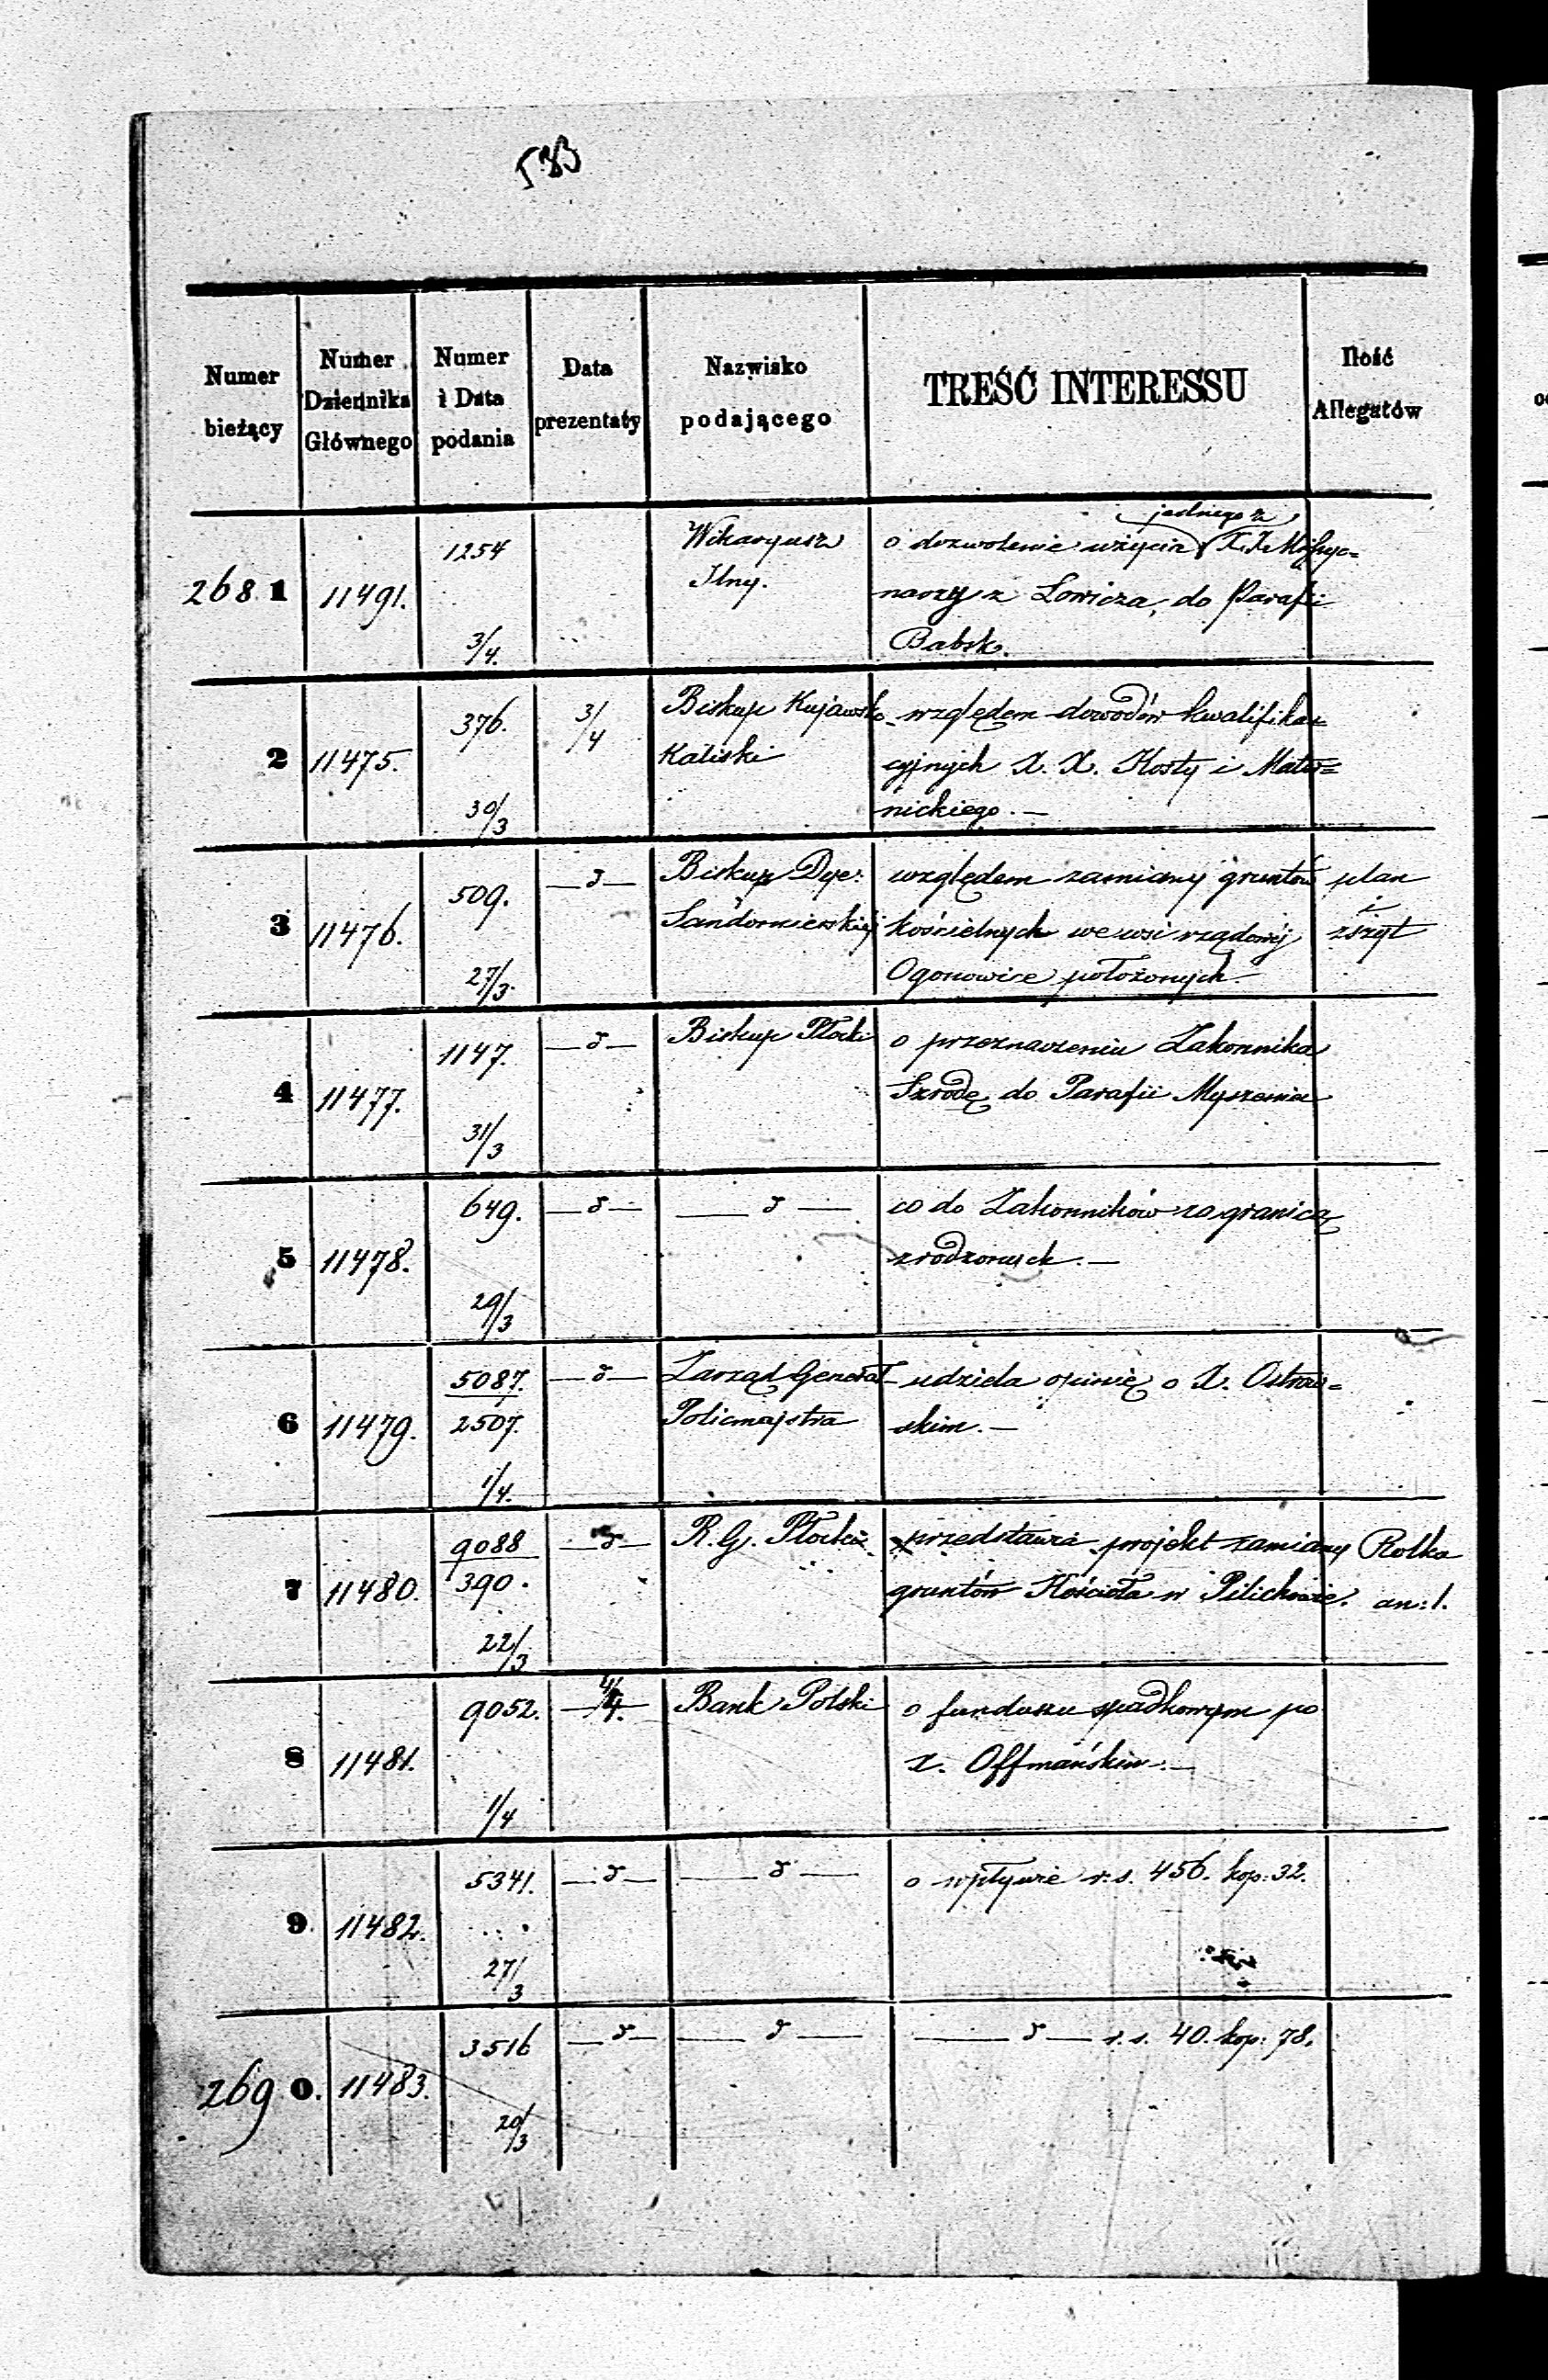 583
Numer bieżący | Numer Dziennika Głównego | Numer i Data podania | Data prezentaty | Nazwisko podającego | TREŚĆ INTERESSU | Ilość Allegatów
2681 | 11491. | 1254 3/4. | | Wikaryusz Jlny. | o dozwolenie użycia jednego z X.X. Missyo=
narzy z Lowicza, do Parafii
Babsk.
2 | 11475. | 376. 30/3 | 3/4 | Biskup Kujawsko Kaliski | względem dowodów kwalifika=
cyjnych X. X. Kosty i Mater=
nickiego. —
3 | 11476. | 509. 27/3. | — d — | Biskup Dye: Sandomierskiej | względem zamiany gruntów | plan
kościelnych we wsi rządowéj | i zszyt
Ogonowice położonych.
4 | 11477. | 1147. 31/3 | — d — | Biskup Płocki | o przeznaczeniu Zakonnika
Szrodę do Parafii Myszeniec
5 | 11478. | 649. 29/3 | — d — | — d — | co do Zakonników zagranicą
zrodzonych. —
6 | 11479. | 5087. 2507. 1/4. | — d — | Zarząd Generał Policmajstra | udziela opinię o X. Ostrow=
skim. —
7 | 11480. | 9088 390. 22/3 | — d — | R. G. Płocki | przedstawia projekt zamiany | Rolka
gruntów Kościoła w Pilichowie. | an: 1.
8 | 11481. | 9052. 1/4 | 4/4. | Bank Polski | o funduszu spadkowym po
X. Offmańskim. —
9. | 11482. | 5341. 27/3 | — d — | — d — | o wpływie r. s. 456. kop: 32.
2690. | 11483. | 3516 20/3 | — d — | — d — | — d — r. s. 40. kop: 78.